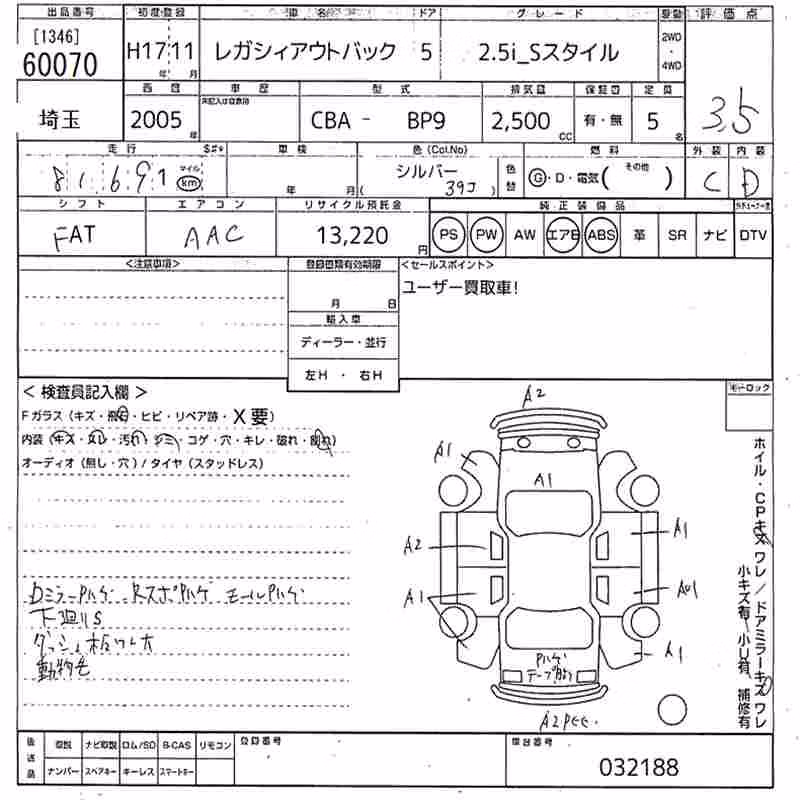 出品番号 初度登録 車名 ドア グレード 駆動 評価点
[1346]
60070 H17 11 レガシィアウトバック 5 2.5i_Sスタイル 2WD・4WD
年 月
西暦 車歴 型式 排気量 保証書 定員
埼玉 2005 年 CBA - BP9 2,500 CC 有・無 5 名 3.5
走行 車検 色(Col.No) 燃料 外装 内装
81691 マイル km 年 月 シルバー ( 39J ) 色替 G・D・電気( その他 ) C D
シフト エアコン リサイクル預託金 純正装備品
FAT AAC 13,220 円 PS PW AW エアB ABS 革 SR ナビ DTV
<注意事項> 登録書類有効期限 <セールスポイント>
月 日 ユーザー買取車!
輸入車
ディーラー・並行
左H・右H
<検査員記入欄> モーロック
Fガラス(キズ・飛石・ヒビ・リペア跡・X要)
内装(キズ・ヌレ・汚れ・シミ・コゲ・穴・キレ・破れ・割れ)
オーディオ(無し・穴)/タイヤ(スタッドレス)
A2
A1
A1
A2
A1
A1
A1
Pハゲ
A2
ホイル・CPキズ ワレ/ドアミラーキズ ワレ
小キズ有、小U有、補修有
DミラーPハゲ RスポPハゲ モールPハゲ
下廻りS
後送品 取説 ナビ取説 ロム/SD B-CAS リモコン 登録番号 車台番号
ナンバー スペアキー キーレス スマートキー 032188